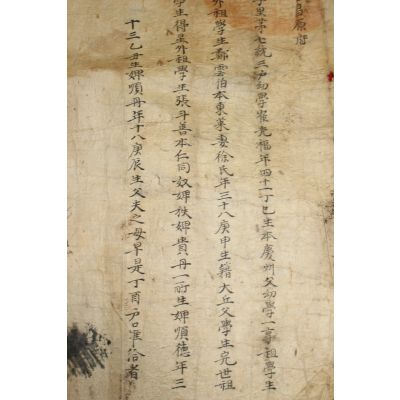 原府
里第七統三戶幼學崔光福年四十一丁巳生本慶州父幼學一亨祖學生
外祖學生鄭雲伯本東萊妻徐氏年三十八庚申生籍大丘父學生完世祖
學生得星外祖學生張斗善本仁同奴婢秩婢貴丹一所生婢順德年三
十三乙丑生婢順丹年十八庚辰生父夫之母早是丁酉戶口準給者